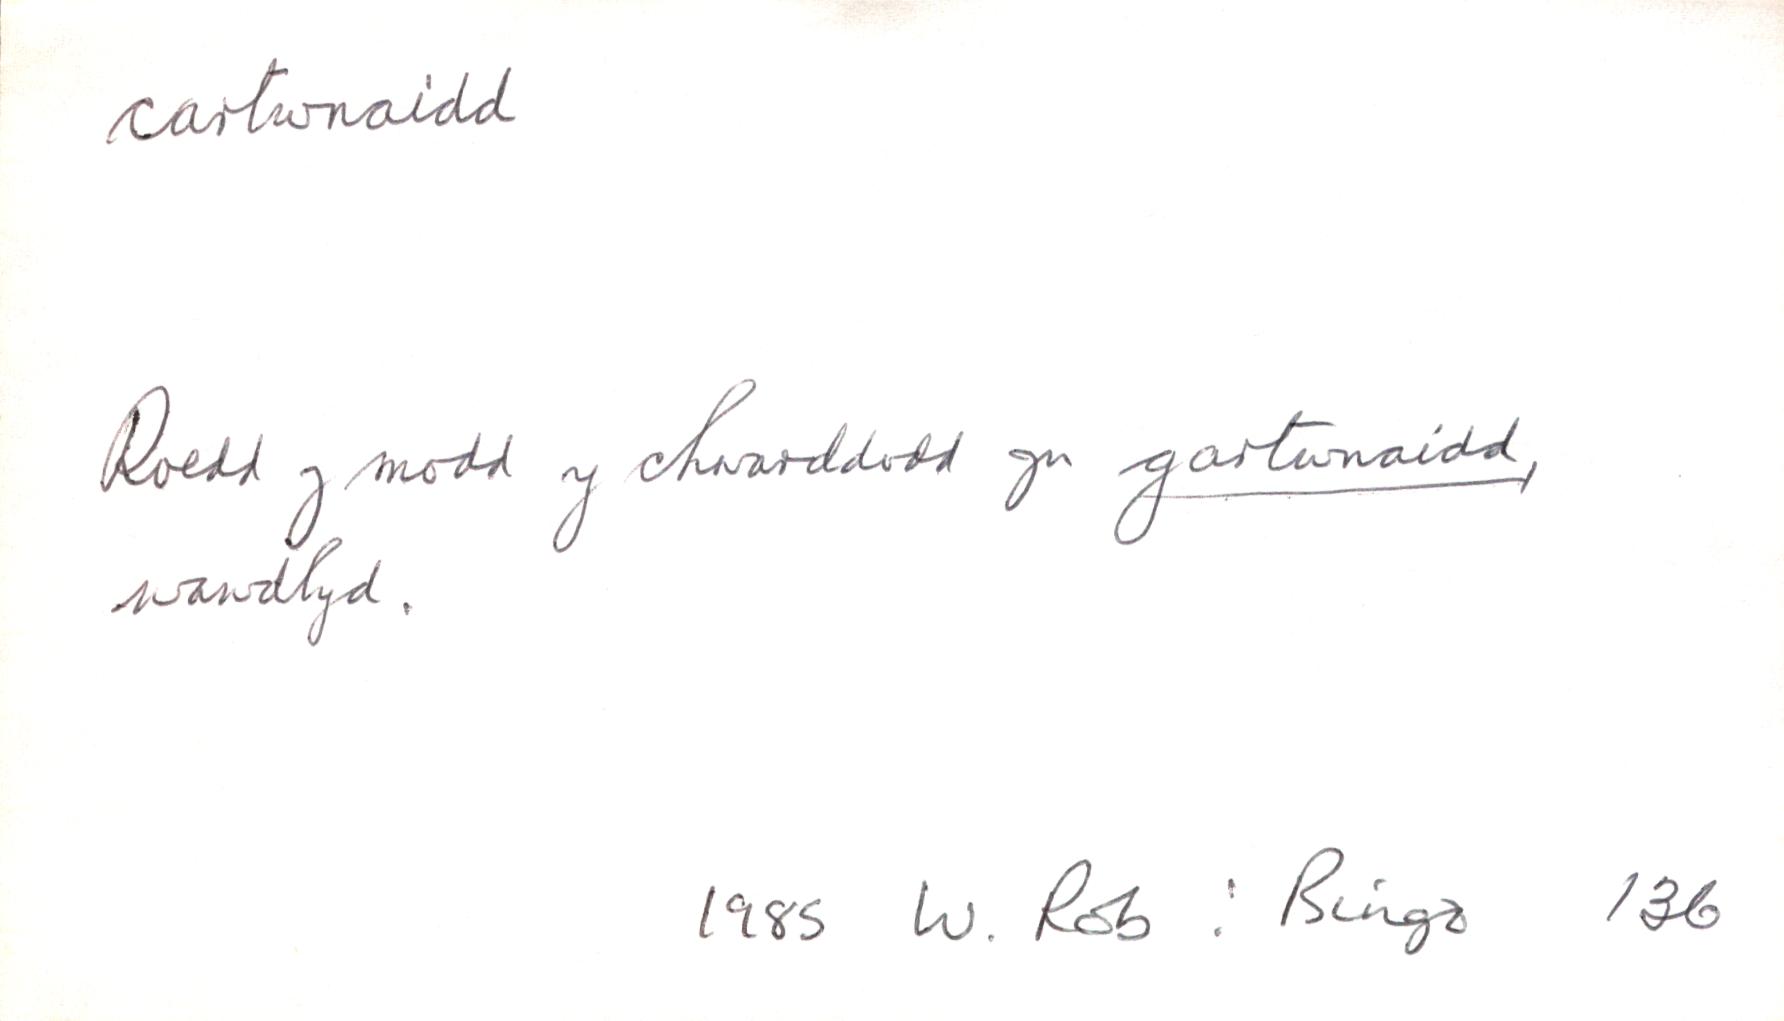 cartwnaidd
Roedd y modd y chwarddodd yn gartwnaidd,
wawdlyd.
1985 W. Rob : Bingo 136